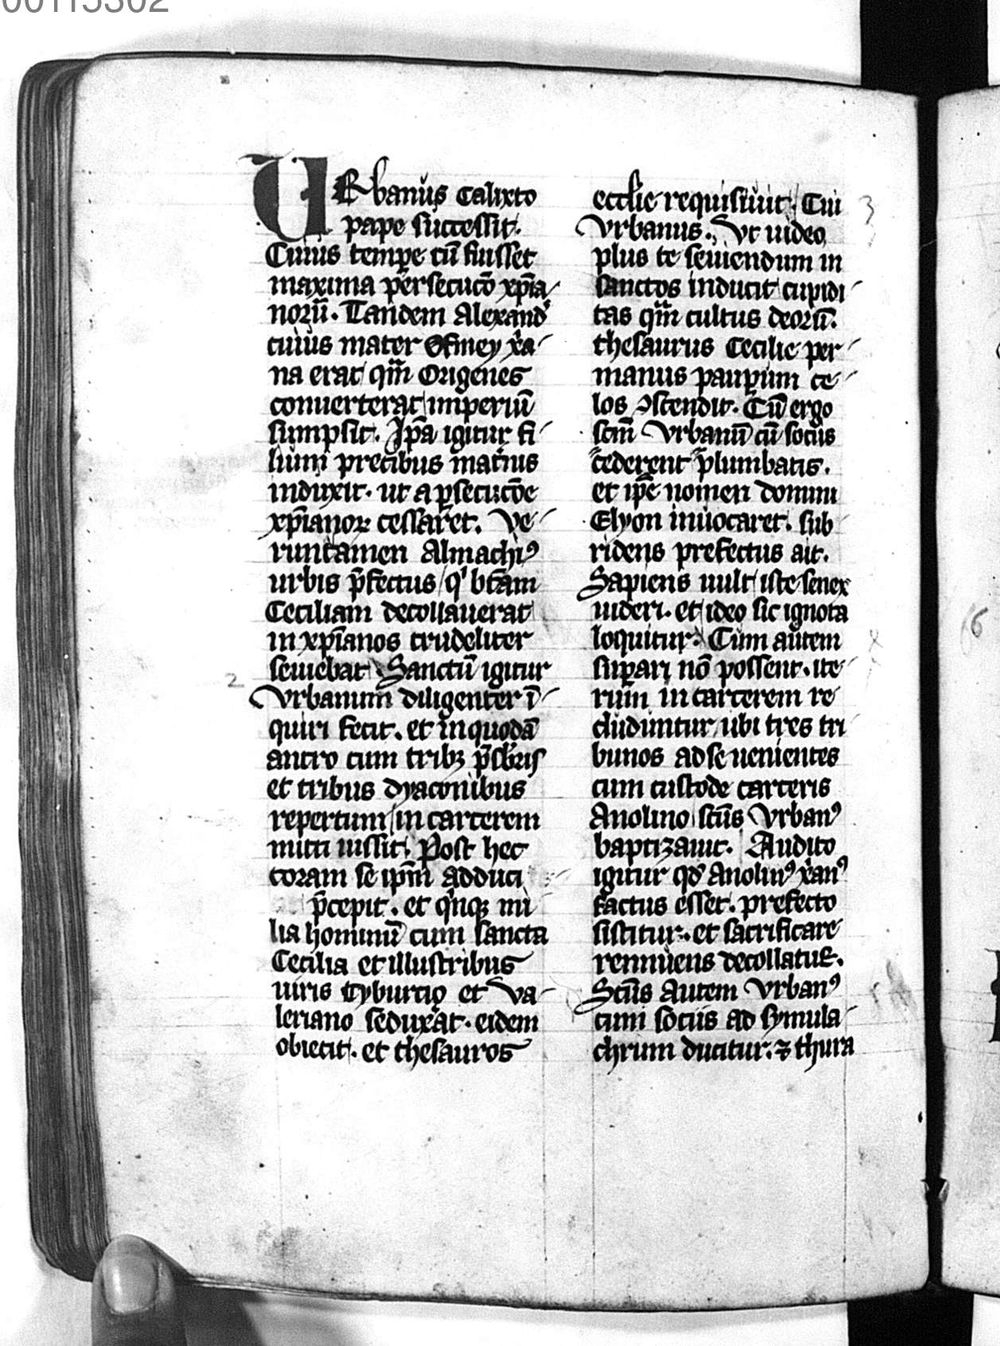 00115302
URbanus Calixto
pape successit.
Cuius tempe cū fuisset
maxima persecucō xp̄ia
norū. Tandem Alexand
cuius mater xā
na erat qm̄ Origenes
conuerterat imperiū
sumpsit. Ip̄a igitur fi
lium precibus matris
induxit. ut a psecucōe
xp̄ianoꝝ cessaret. Ve
runtamen Almachiꝰ
urbis p̄fectus qͥ btām
Ceciliam decollauerat
in xp̄ianos crudeliter
seuiebat. Sanctū igitur
2
Vrbanum diligenter ī
quiri fecit. et in quodā
antro cum tribꝫ p̄sbris
et tribus dyaconibus
repertum in carcerem
mitti iussit. Post hec
coram se ip̄m adduci
p̄cepit. et qͥnqꝫ mi
lia hominū cum sancta
Cecilia et illustribus
uiris tyburcio et Va
leriano seduxāt. eidem
obiecit. et thesauros
ecclīe requisiuit. Cui 3
Vrbanus. Vt uideo
plus te seuiendum in
sanctos inducit cupidi
tas qm̄ cultus deorū.
thesaurus Cecilie per
manus paupum ce
los ꝯscendit. Cū ergo
scm̄ Vrbanū cū sociis
cederent plumbatis.
et ip̄e nomen domini
Elyon inuocaret. sub
ridens prefectus ait.
Sapiens uult iste senex
uideri. et ideo sic ignota
loquitur. Cum autem
supari nō possent. ite
rum in carcerem re
cluduntur ubi tres tri
bunos ad se uenientes
cum custode carceris
Anolino scūs Vrbanꝰ
baptizauit. Audito
igitur qd Anolinꝰ xānꝰ
factus esset. prefecto
sistitur. et sacrificare
rennuens decollatur.
Scūs autem Vrbanꝰ
cum sociis ad symula
chrum ducitur. ⁊ thura
6